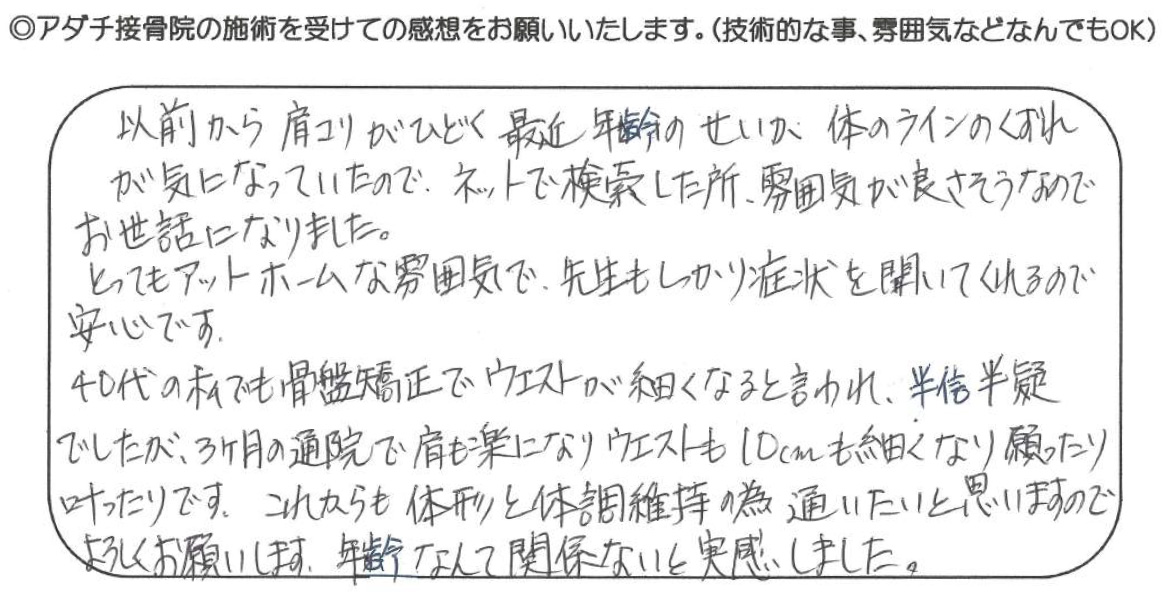 ◎アダチ接骨院の施術を受けての感想をお願いいたします。(技術的な事、雰囲気などなんでもOK)
以前から肩コリがひどく最近年齢のせいか、体のラインのくずれ
が気になっていたので、ネットで検索した所、雰囲気が良さそうなので
お世話になりました。
とってもアットホームな雰囲気で、先生もしっかり症状を聞いてくれるので
安心です。
40代の私でも骨盤矯正でウエストが細くなると言われ、半信半疑
でしたが、3ヶ月の通院で肩も楽になりウエストも10cmも細くなり願ったり
叶ったりです。これからも体形と体調維持の為通いたいと思いますので
よろしくお願いします。年齢なんて関係ないと実感しました。